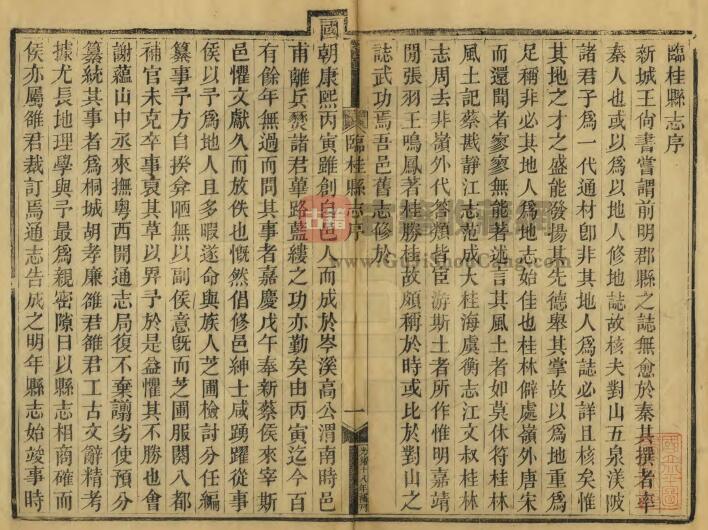 臨桂縣志序
新城王尚書嘗謂前明郡縣之誌無愈於秦其撰者率
秦人也或以以地人修地誌故核夫對山五泉渼陂
諸君子為一代通材卽非其地人為誌必詳且核矣惟
其地之才之盛能發揚其先德舉其掌故以為地重為
足稱非必其地人為地志始佳也桂林僻處嶺外唐宋
而還聞者寥寥無能著述言其風土者如莫休符桂林
風土記蔡戡靜江志范成大桂海虞衡志江文叔桂林
志周去非嶺外代答類皆臣游斯土者所作惟明嘉靖
間張羽王鳴鳳著桂勝桂故頗稱於時或比於對山之
誌武功焉吾邑舊志修於
國朝康熙丙寅雖創自邑人而成於岑溪高公渭南時邑
甫離兵燹諸君篳路藍縷之功亦勤矣由丙寅迄今百
有餘年無過而問其事者嘉慶戊午奉新蔡侯來宰斯
邑懼文獻久而放佚也慨然倡修邑紳士咸踴躍從事
侯以予為地人且多暇遂命與族人芝圃檢討分任編
纂事予方自揆弇陋無以副侯意旣而芝圃服闋入都
補官未克卒事裒其草以畀予於是益懼其不勝也會
謝蘊山中丞來撫粵西開通志局復不棄譾劣使預分
纂統其事者為桐城胡孝廉雒君雒君工古文辭精考
據尤長地理學與予最為親密隙日以縣志相商確而
侯亦屬雒君裁訂焉通志告成之明年縣志始竣事時
臨桂縣志序
一
古籍
www.GuJiShouCang.com